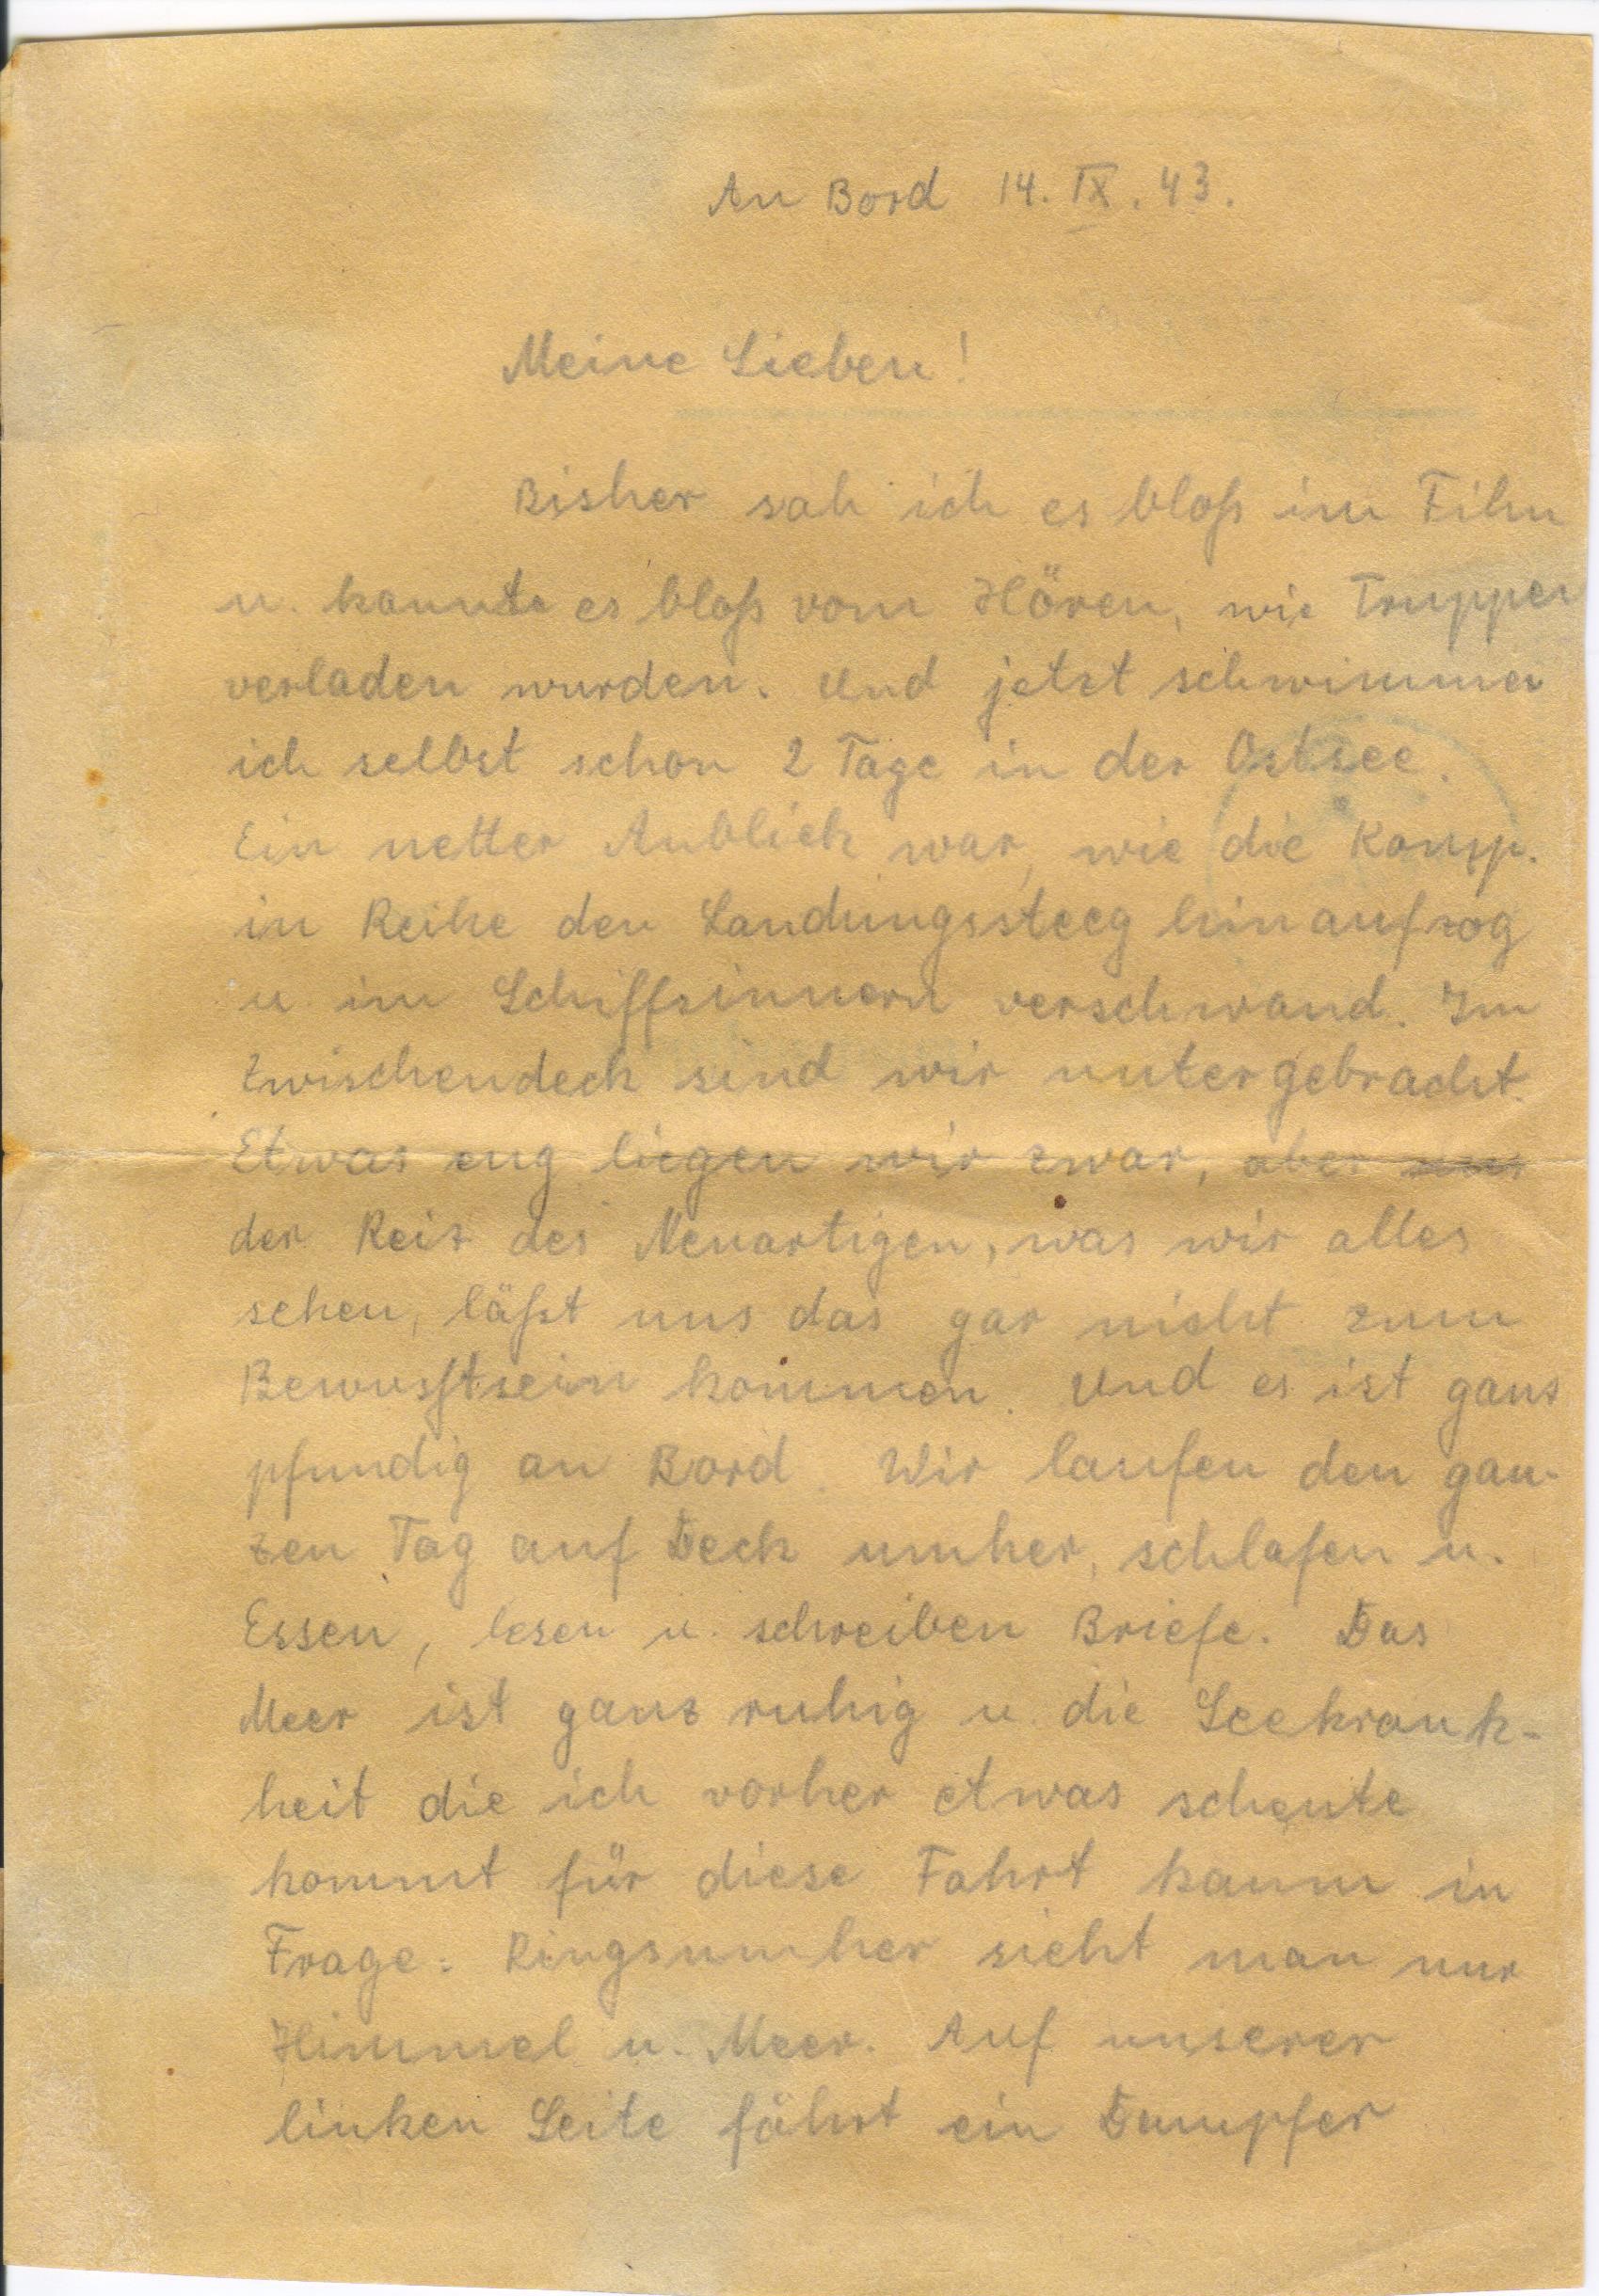 An Bord 14. IX. 43.
Meine Lieben!
Bisher sah ich es bloß im Film
u. kannte es bloß vom Hören, wie Truppen
verladen wurden. Und jetzt schwimme
ich selbst schon 2 Tage in der Ostsee.
Ein netter Anblick war, wie die Komp.
in Reihe den Landungssteeg hinaufzog
u. im Schiffsinnern verschwand. Im
Zwischendeck sind wir untergebracht.
Etwas eng liegen wir zwar, aber
der Reiz des Neuartigen, was wir alles
sehen, läßt uns das gar nicht zum
Bewusstsein kommen. Und es ist ganz
pfundig an Bord. Wir laufen den gan-
zen Tag auf Deck umher, schlafen u.
Essen, lesen u. schreiben Briefe. Das
Meer ist ganz ruhig u. die Seekrank-
heit die ich vorher etwas scheute
kommt für diese Fahrt kaum in
Frage. Ringsumher sieht man nur
Himmel u. Meer. Auf unserer
linken Seite fährt ein Dampfer